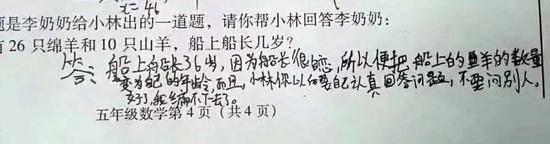 题是李奶奶给小林出的一道题，请你帮小林回答李奶奶：
有 26 只绵羊和 10 只山羊，船上船长几岁？
答：船上船长36岁，因为船长很恋，所以便把船上的羊的数量
变为自己的年龄，而且，小林你以后要自己认真回答问题，不要问别人。
我编不下去了。
五年级数学第 4 页（共 4 页）